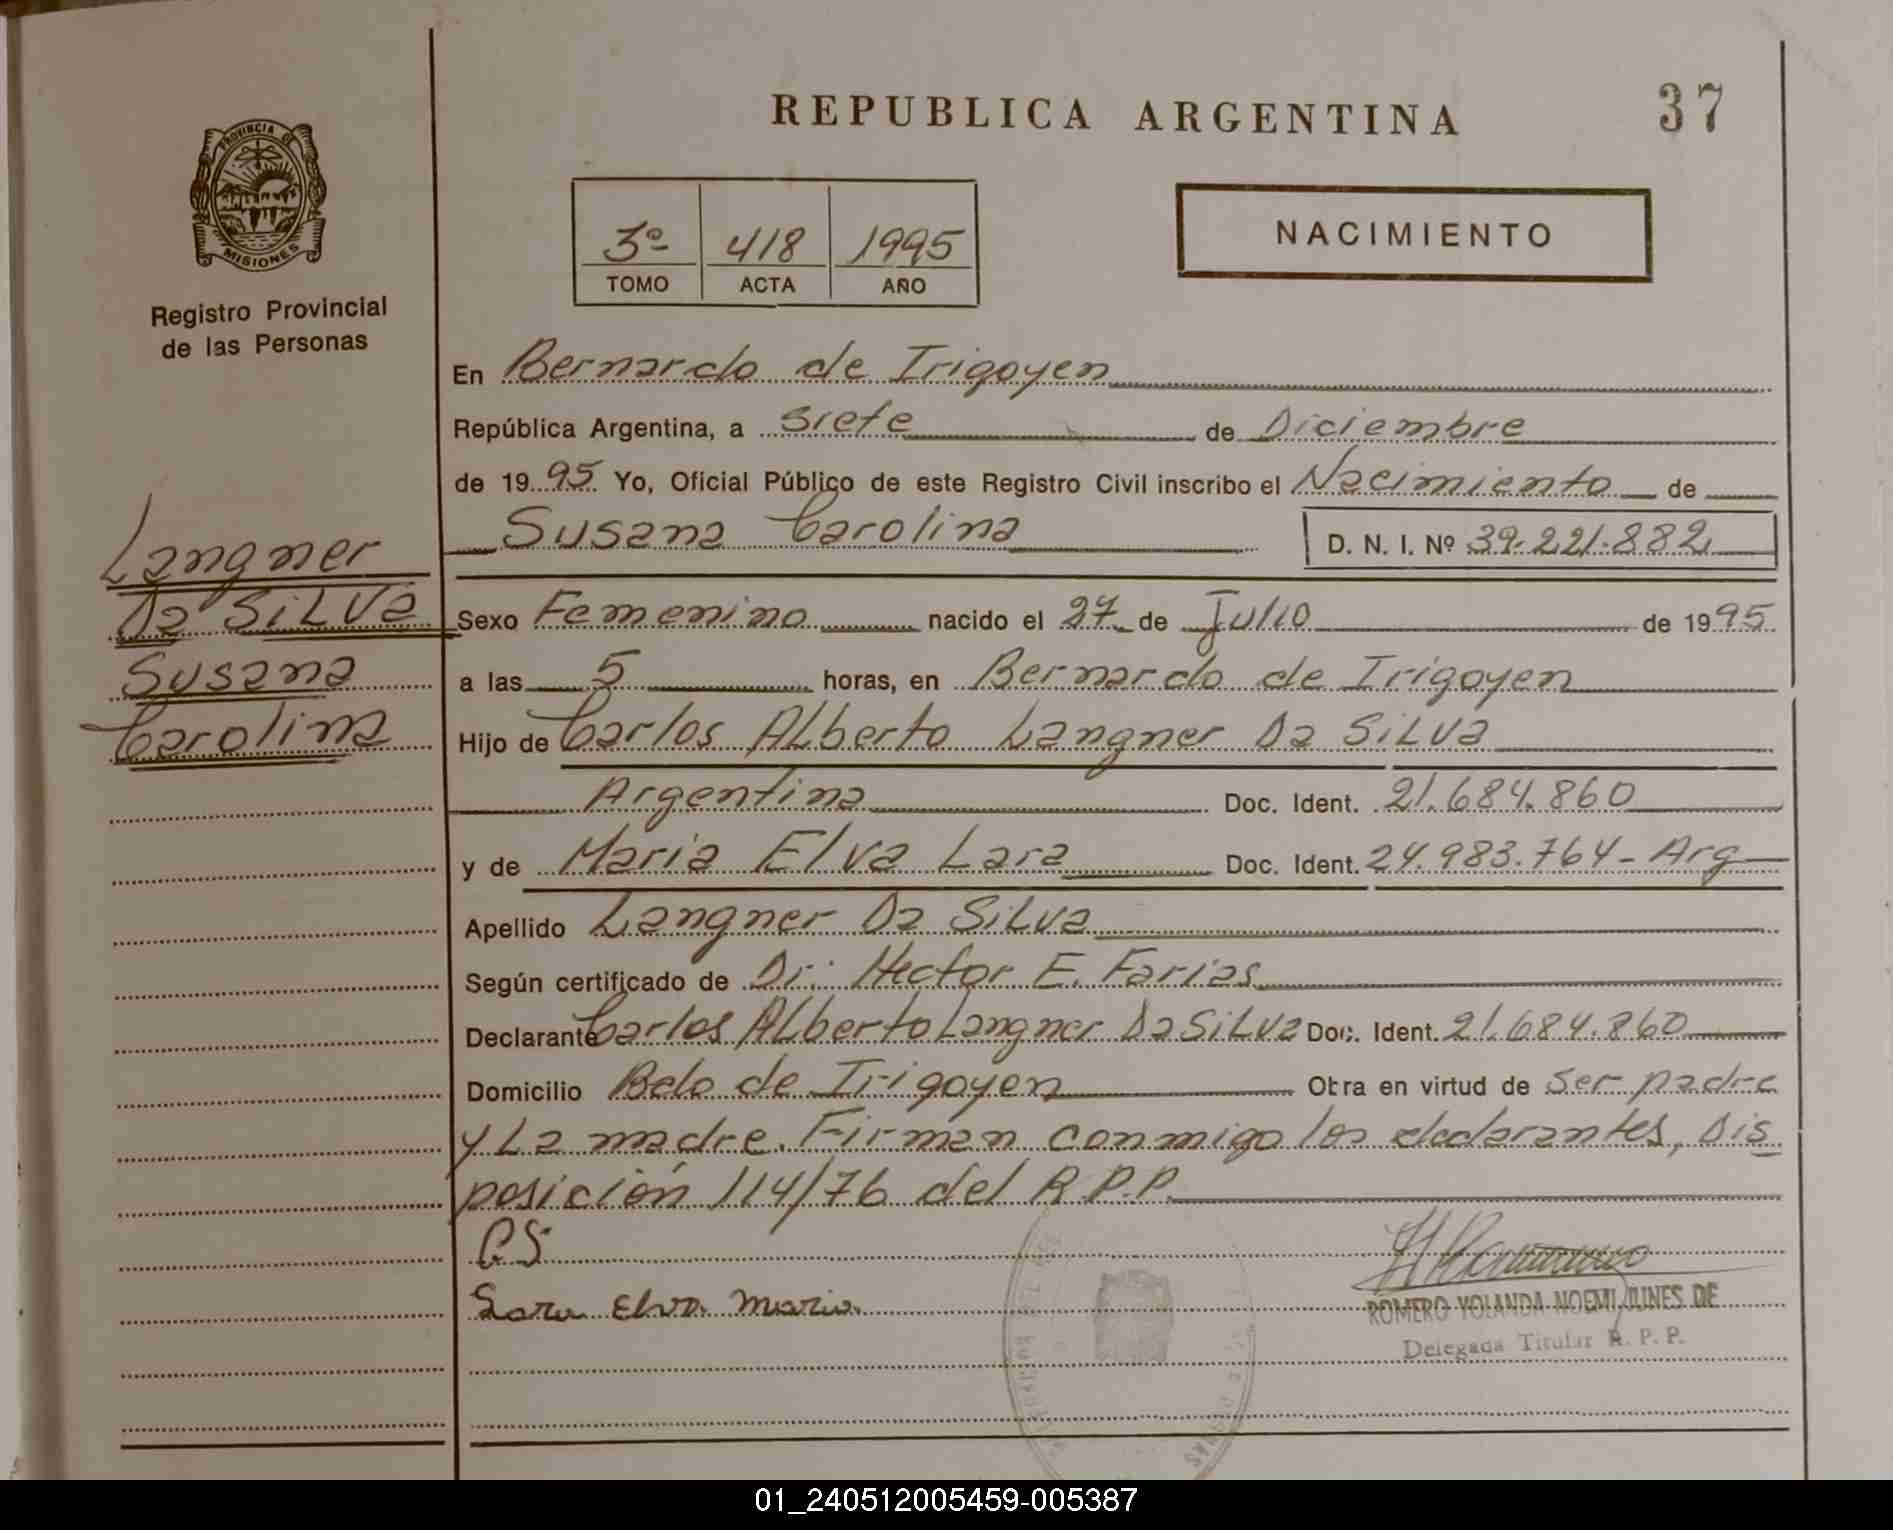 REPUBLICA ARGENTINA
37
PROVINCIA DE
MISIONES
Registro Provincial
de las Personas
3º 418 1995
TOMO ACTA AÑO
NACIMIENTO
En Bernardo de Irigoyen
República Argentina, a siete de Diciembre
de 1995 Yo, Oficial Público de este Registro Civil inscribo el Nacimiento de
Susana Carolina D. N. I. Nº 39.221.882
Langner
Da SiLVa
Susana
Carolina
Sexo Femenino nacido el 27 de Julio de 1995
a las 5 horas, en Bernardo de Irigoyen
Hijo de Carlos ALberto Langner Da SiLva
Argentina Doc. Ident. 21.684.860
y de Maria Elva Lara Doc. Ident. 24.983.764 - Arg
Apellido Langner Da SiLva
Según certificado de Dr: Hector E. Farias
Declarante Carlos ALberto Langner Da SiLva Doc. Ident. 21.684.860
Domicilio Bdo de Irigoyen Obra en virtud de ser padre
y La madre. Firman conmigo los declarantes, Dis
posición 114/76 del R.P.P.
CS
Lara Elva Maria
ROMERO YOLANDA NOEMI JUNES DE
Delegada Titular R. P. P.
01_240512005459-005387